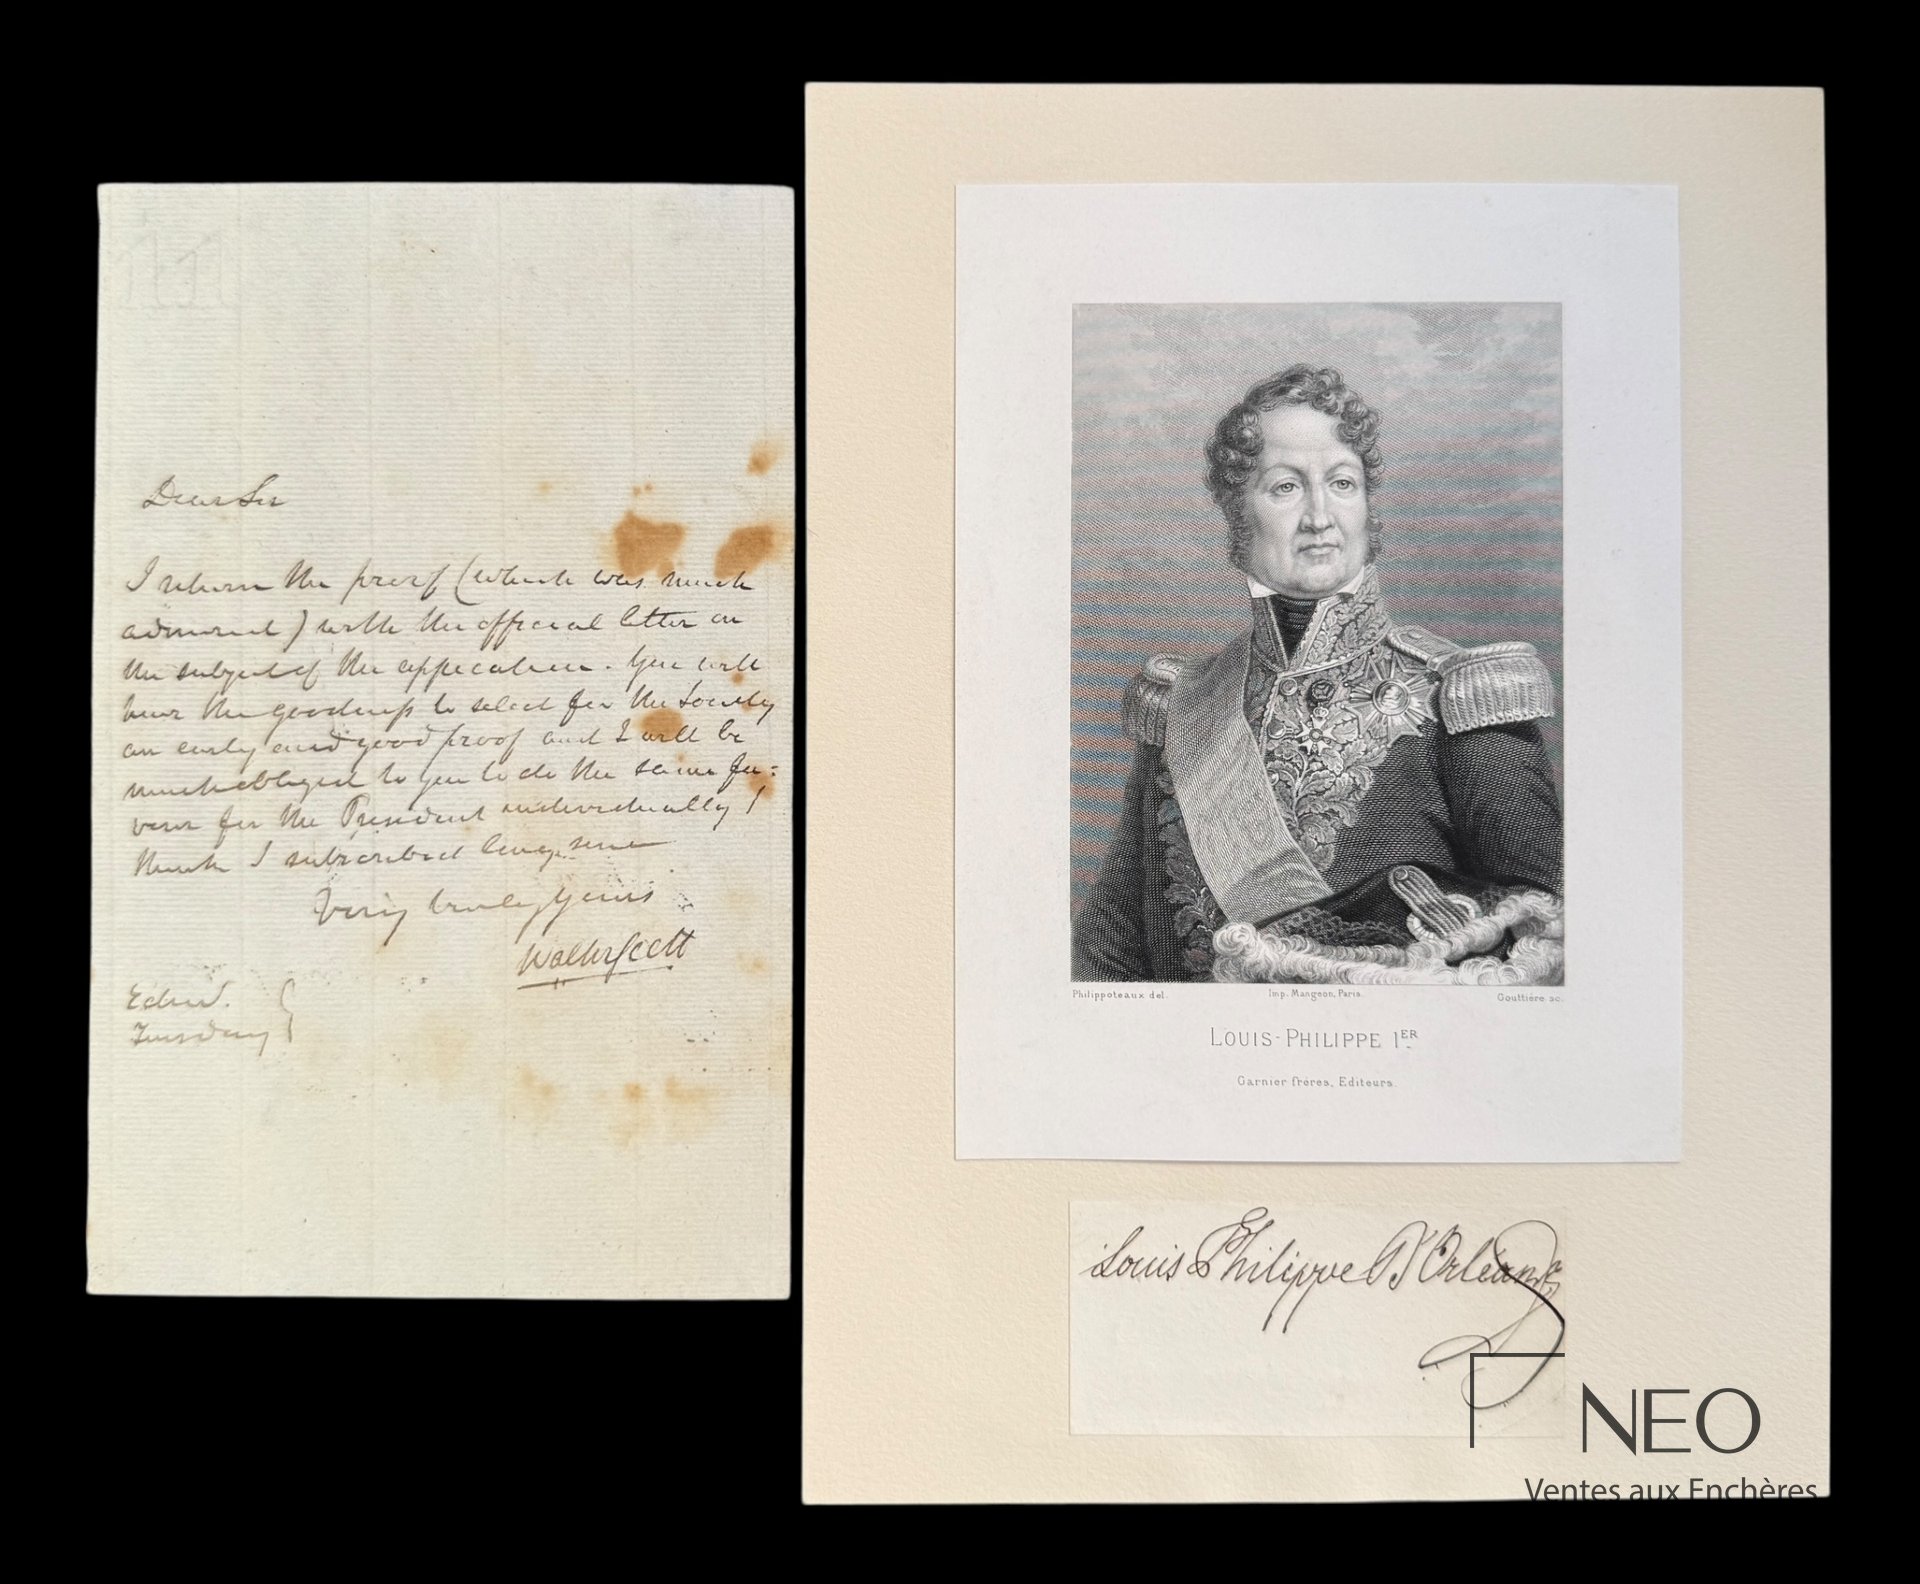 Dear Sir
I return the proof (which was much
admired) with the official letter on
the subject of the application. You will
have the goodness to select for the Society
an early and good proof and I will be
much obliged to you to do the same fa=
vour for the President individually I
think I subscribed long since
Very truly yours
Walter Scott
Edinr.
Tuesday
Philippoteaux del.
Imp. Mangeon, Paris.
Gouttière sc.
LOUIS-PHILIPPE 1ER
Garnier frères, Editeurs.
Louis Philippe D'Orléans
NEO
Ventes aux Enchères